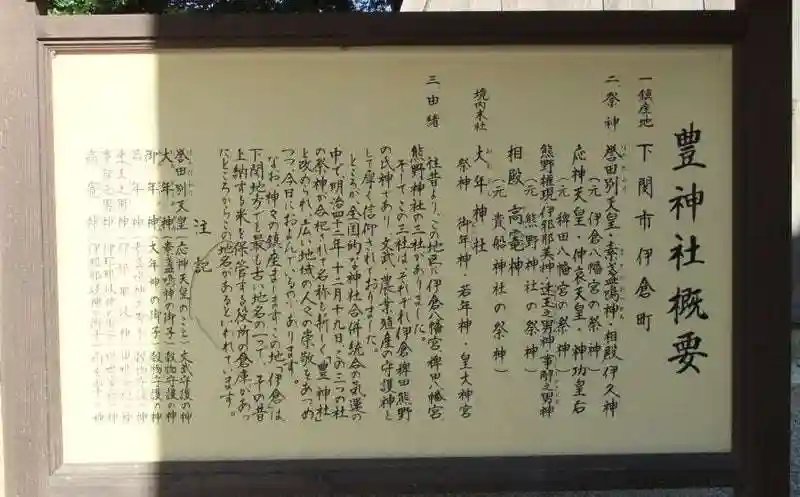 豊神社概要
一 鎮座地 下関市伊倉町
二 祭神 誉田別天皇・素盞嗚神・相殿伊久神
（元 伊倉八幡宮の祭神）
応神天皇・仲哀天皇・神功皇后
（元 稗田八幡宮の祭神）
熊野権現伊邪那美神・速玉之男神・事解之男神
（元 熊野神社の祭神）
相殿 高龗神
（元 貴船神社の祭神）
境内末社 大年神社
祭神 御年神・若年神・皇大神宮
三 由緒
往昔より、この地区に伊倉八幡宮、稗田八幡宮
熊野神社の三社がありました。
そしてこの三社は、それぞれ伊倉、稗田、熊野
の氏神であり、文武、農業殖産の守護神と
して厚く信仰されておりました。
ところが、全国的な神社合併統合の気運の
中で、明治四二年十二月十九日、この三つの社
の祭神が合祀されて名称も新しく「豊神社」
と改められ、広い地域の人々の崇敬をあつめ
つつ今日におよんでいるのであります。
なお、神々の鎮座まします、この地「伊倉」は
下関地方でも最も古い地名の一つで、その昔
上納する米を保管する役所の倉庫があっ
たところからこの地名があるといわれています。
注記
誉田別天皇（応神天皇のこと）文武守護の神
大年神（素盞嗚神の御子）穀物守護の神
御年神（大年神の御子）穀物守護の神
若年神